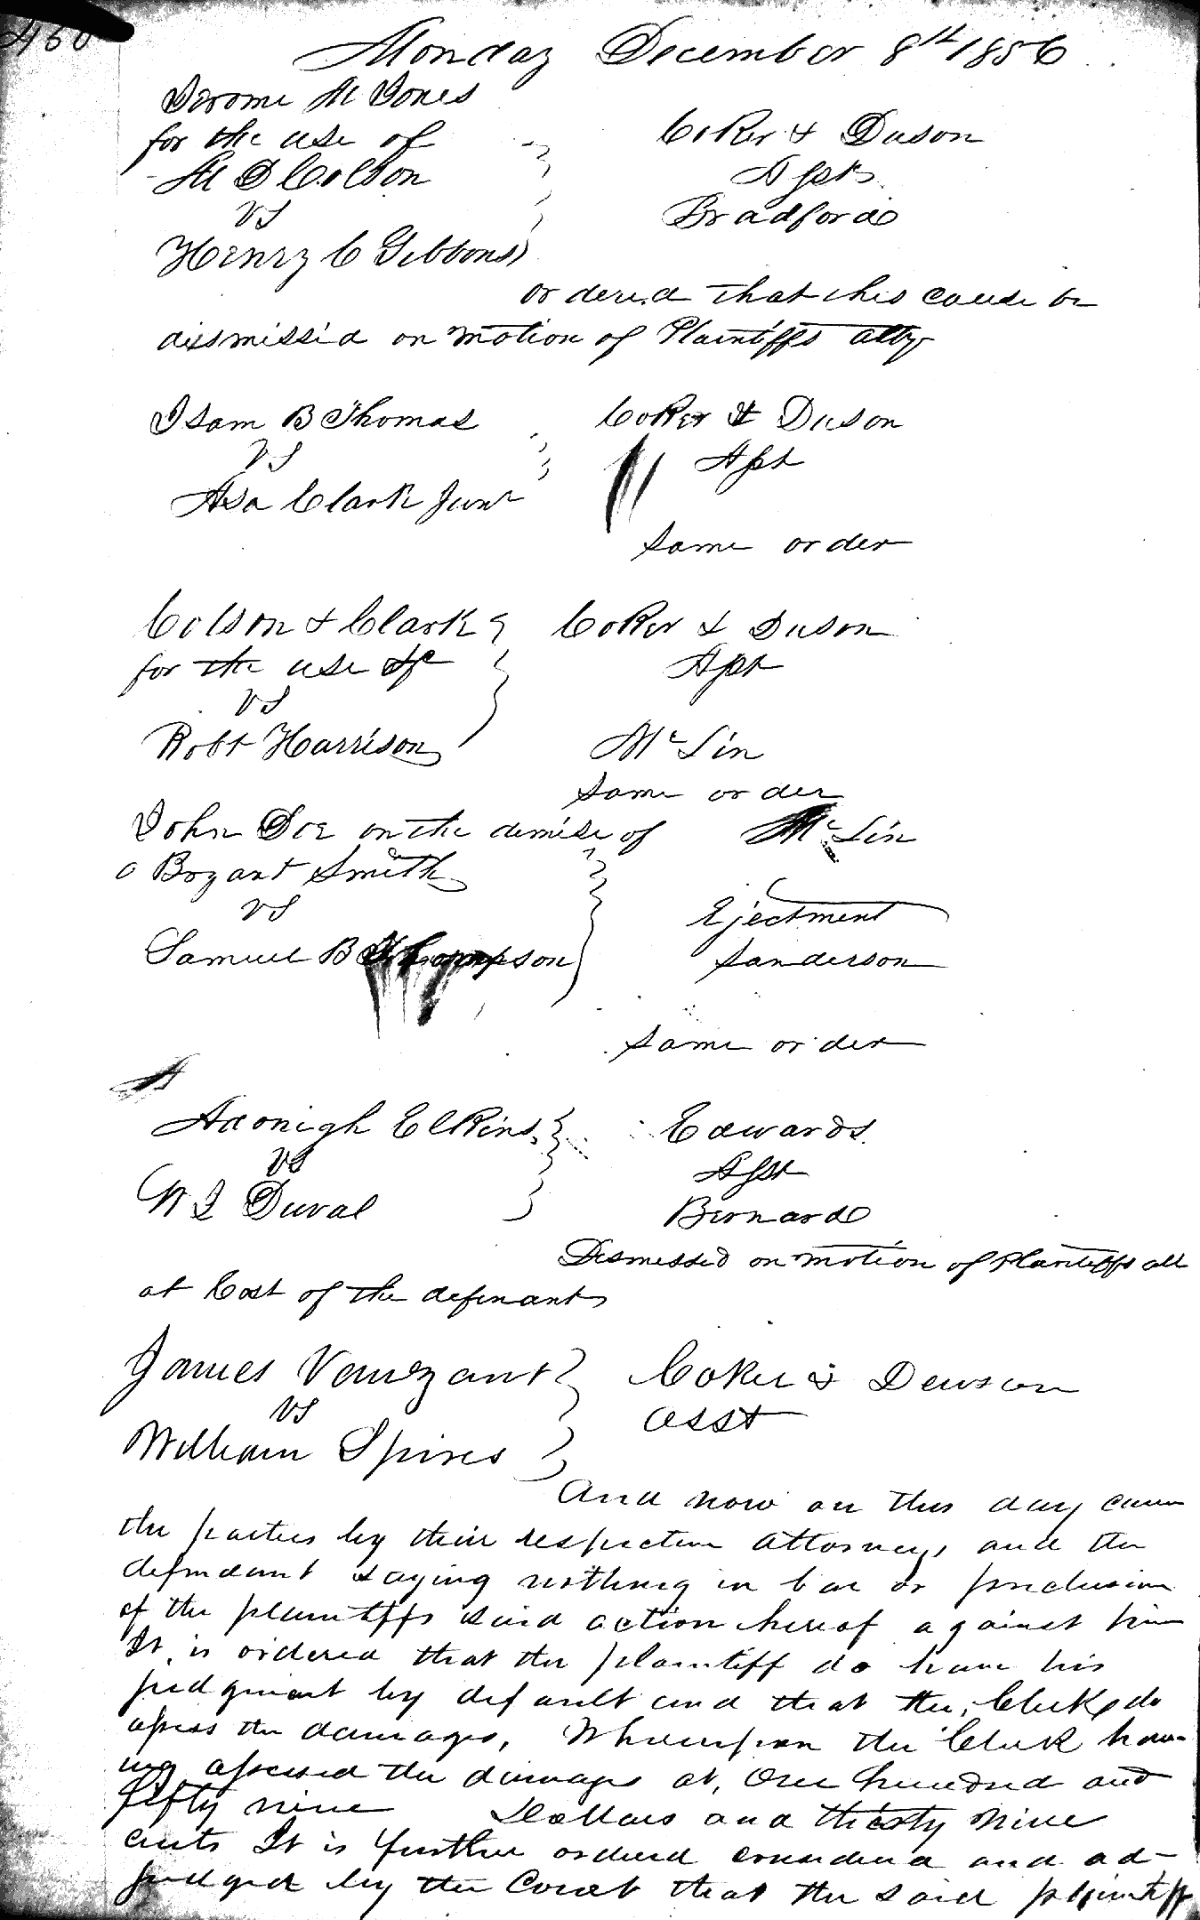 460
Monday December 8th 1856
Jerome M Jones
for the use of Coker & Duson
M D Colson Asst
vs Bradford
Henry C Gibbons
ordered that this cause be
dissmissid on motion of Plaintiffs atty
Isam B Thomas Coker & Duson
vs Asst
Asa Clark Junr
Same order
Colson & Clark Coker & Duson
for the use of Asst
vs
Robt Harrison McLin
Same order
John Doe on the demise of McLin
Bryant Smith
vs Ejectment
Samuel B Thompson Sanderson
Same order
Adonigh Elkins Edwards
vs Asst
W I Duval Bernard
Dismissed on motion of Plantiffs att
at Cost of the defenants
James Vanzant Coker & Dewson
vs asst
William Spires
And now on this day came
the parties by their respective attorneys and the
defendant saying nothing in bar or preclusion
of the plaintiffs said action hereof against him
It is ordered that the plaintiff do have his
judgment by default and that the Clerk do
assess the damages, Whereupon the Clerk hav-
ing assessed the damages at, One hundred and
fifty nine Dollars and thirty nine
cents It is further ordered considered and ad-
judged by the Court that the said plaintiff